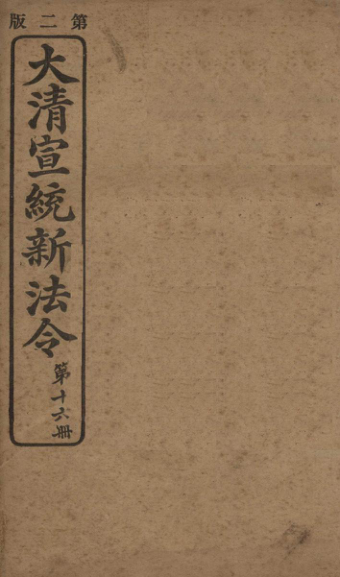 第二版
大清宣統新法令
第十六冊